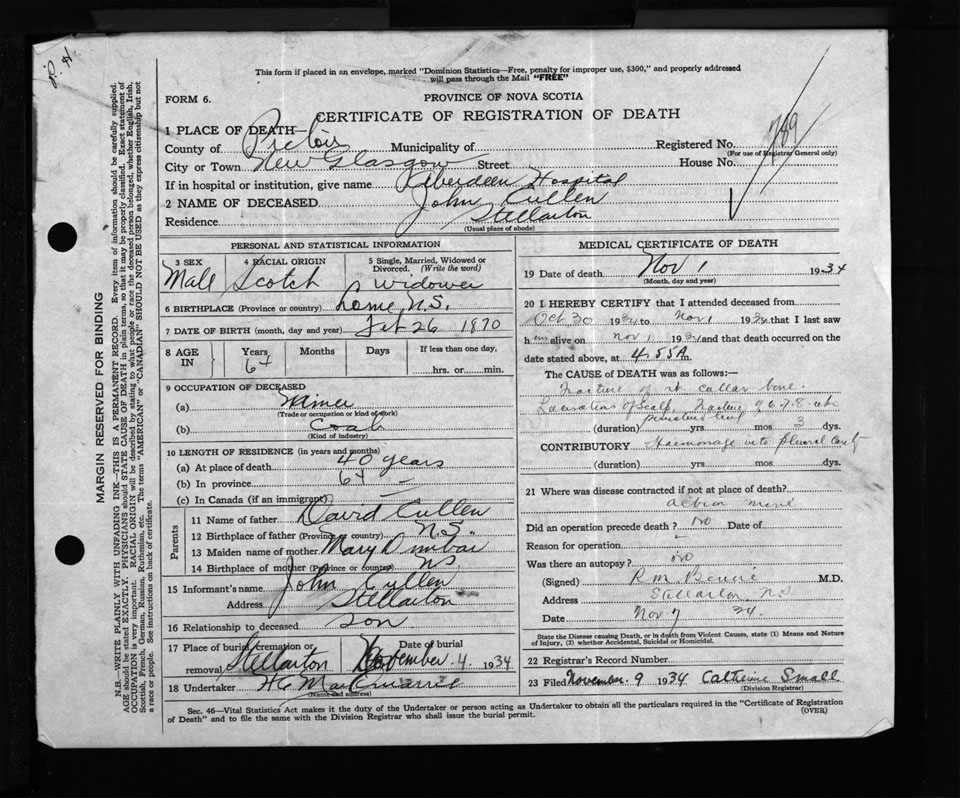 P. H.
This form if placed in an envelope, marked "Dominion Statistics—Free, penalty for improper use, $300," and properly addressed
will pass through the Mail "FREE"
FORM 6.
PROVINCE OF NOVA SCOTIA
CERTIFICATE OF REGISTRATION OF DEATH
1 PLACE OF DEATH—
County of Pictou Municipality of Registered No. 789
(For use of Registrar General only)
City or Town New Glasgow Street House No.
If in hospital or institution, give name Aberdeen Hospital
2 NAME OF DECEASED John Cullen
Residence Stellarton
(Usual place of abode)
PERSONAL AND STATISTICAL INFORMATION
3 SEX 4 RACIAL ORIGIN 5 Single, Married, Widowed or Divorced. (Write the word)
Male Scotch Widower
6 BIRTHPLACE (Province or country) Lorne N.S.
7 DATE OF BIRTH (month, day and year) Feb 26 1870
8 AGE IN Years Months Days If less than one day,
64 hrs. or min.
9 OCCUPATION OF DECEASED
(a) Miner
(Trade or occupation or kind of work)
(b) Coal
(Kind of industry)
10 LENGTH OF RESIDENCE (in years and months)
(a) At place of death 40 years
(b) In province 64
(c) In Canada (if an immigrant)
Parents
11 Name of father David Cullen
12 Birthplace of father (Province or country) N.S.
13 Maiden name of mother Mary Dunbar
14 Birthplace of mother (Province or country) NS
15 Informant's name John Cullen
Address Stellarton
16 Relationship to deceased son
17 Place of burial, cremation or removal Stellarton Date of burial November 4, 1934
18 Undertaker H C MacQuarrie
(Name and address)
MEDICAL CERTIFICATE OF DEATH
19 Date of death Nov 1 1934
(Month, day and year)
20 I HEREBY CERTIFY that I attended deceased from
Oct 30 1934 to Nov 1 1934 that I last saw
him alive on Nov 1 1934 and that death occurred on the
date stated above, at 4.55 A m.
The CAUSE of DEATH was as follows:—
Fracture of rt. collar bone.
Lacerations of Scalp, Fracture of 6.7.8. rib
(duration) yrs. mos 3 dys.
CONTRIBUTORY Haemorrage into pleural cavity
(duration) yrs. mos dys.
21 Where was disease contracted if not at place of death?
Albion mine
Did an operation precede death? no Date of
Reason for operation
Was there an autopsy? no
(Signed) M.D.
Address Stellarton NS
Date Nov 7 34.
State the Disease causing Death, or in death from Violent Causes, state (1) Means and Nature
of Injury, (2) whether Accidental, Suicidal or Homicidal.
22 Registrar's Record Number
23 Filed November 9 1934 Catherine Small
(Division Registrar)
Sec. 46—Vital Statistics Act makes it the duty of the Undertaker or person acting as Undertaker to obtain all the particulars required in the "Certificate of Registration
of Death" and to file the same with the Division Registrar who shall issue the burial permit. (OVER)
MARGIN RESERVED FOR BINDING
N.B.—WRITE PLAINLY WITH UNFADING INK—THIS IS A PERMANENT RECORD. Every item of information should be carefully supplied.
AGE should be stated EXACTLY. PHYSICIANS should STATE CAUSE OF DEATH in plain terms, so that it may be properly classified. Exact statement of
OCCUPATION is very important. RACIAL ORIGIN will be described by stating to what people or race the deceased person belonged, whether English, Irish,
Scottish, French, German, Russian, Ruthenian, etc. The terms "AMERICAN" or "CANADIAN" SHOULD NOT BE USED as they express citizenship but not
a race or people. See instructions on back of certificate.